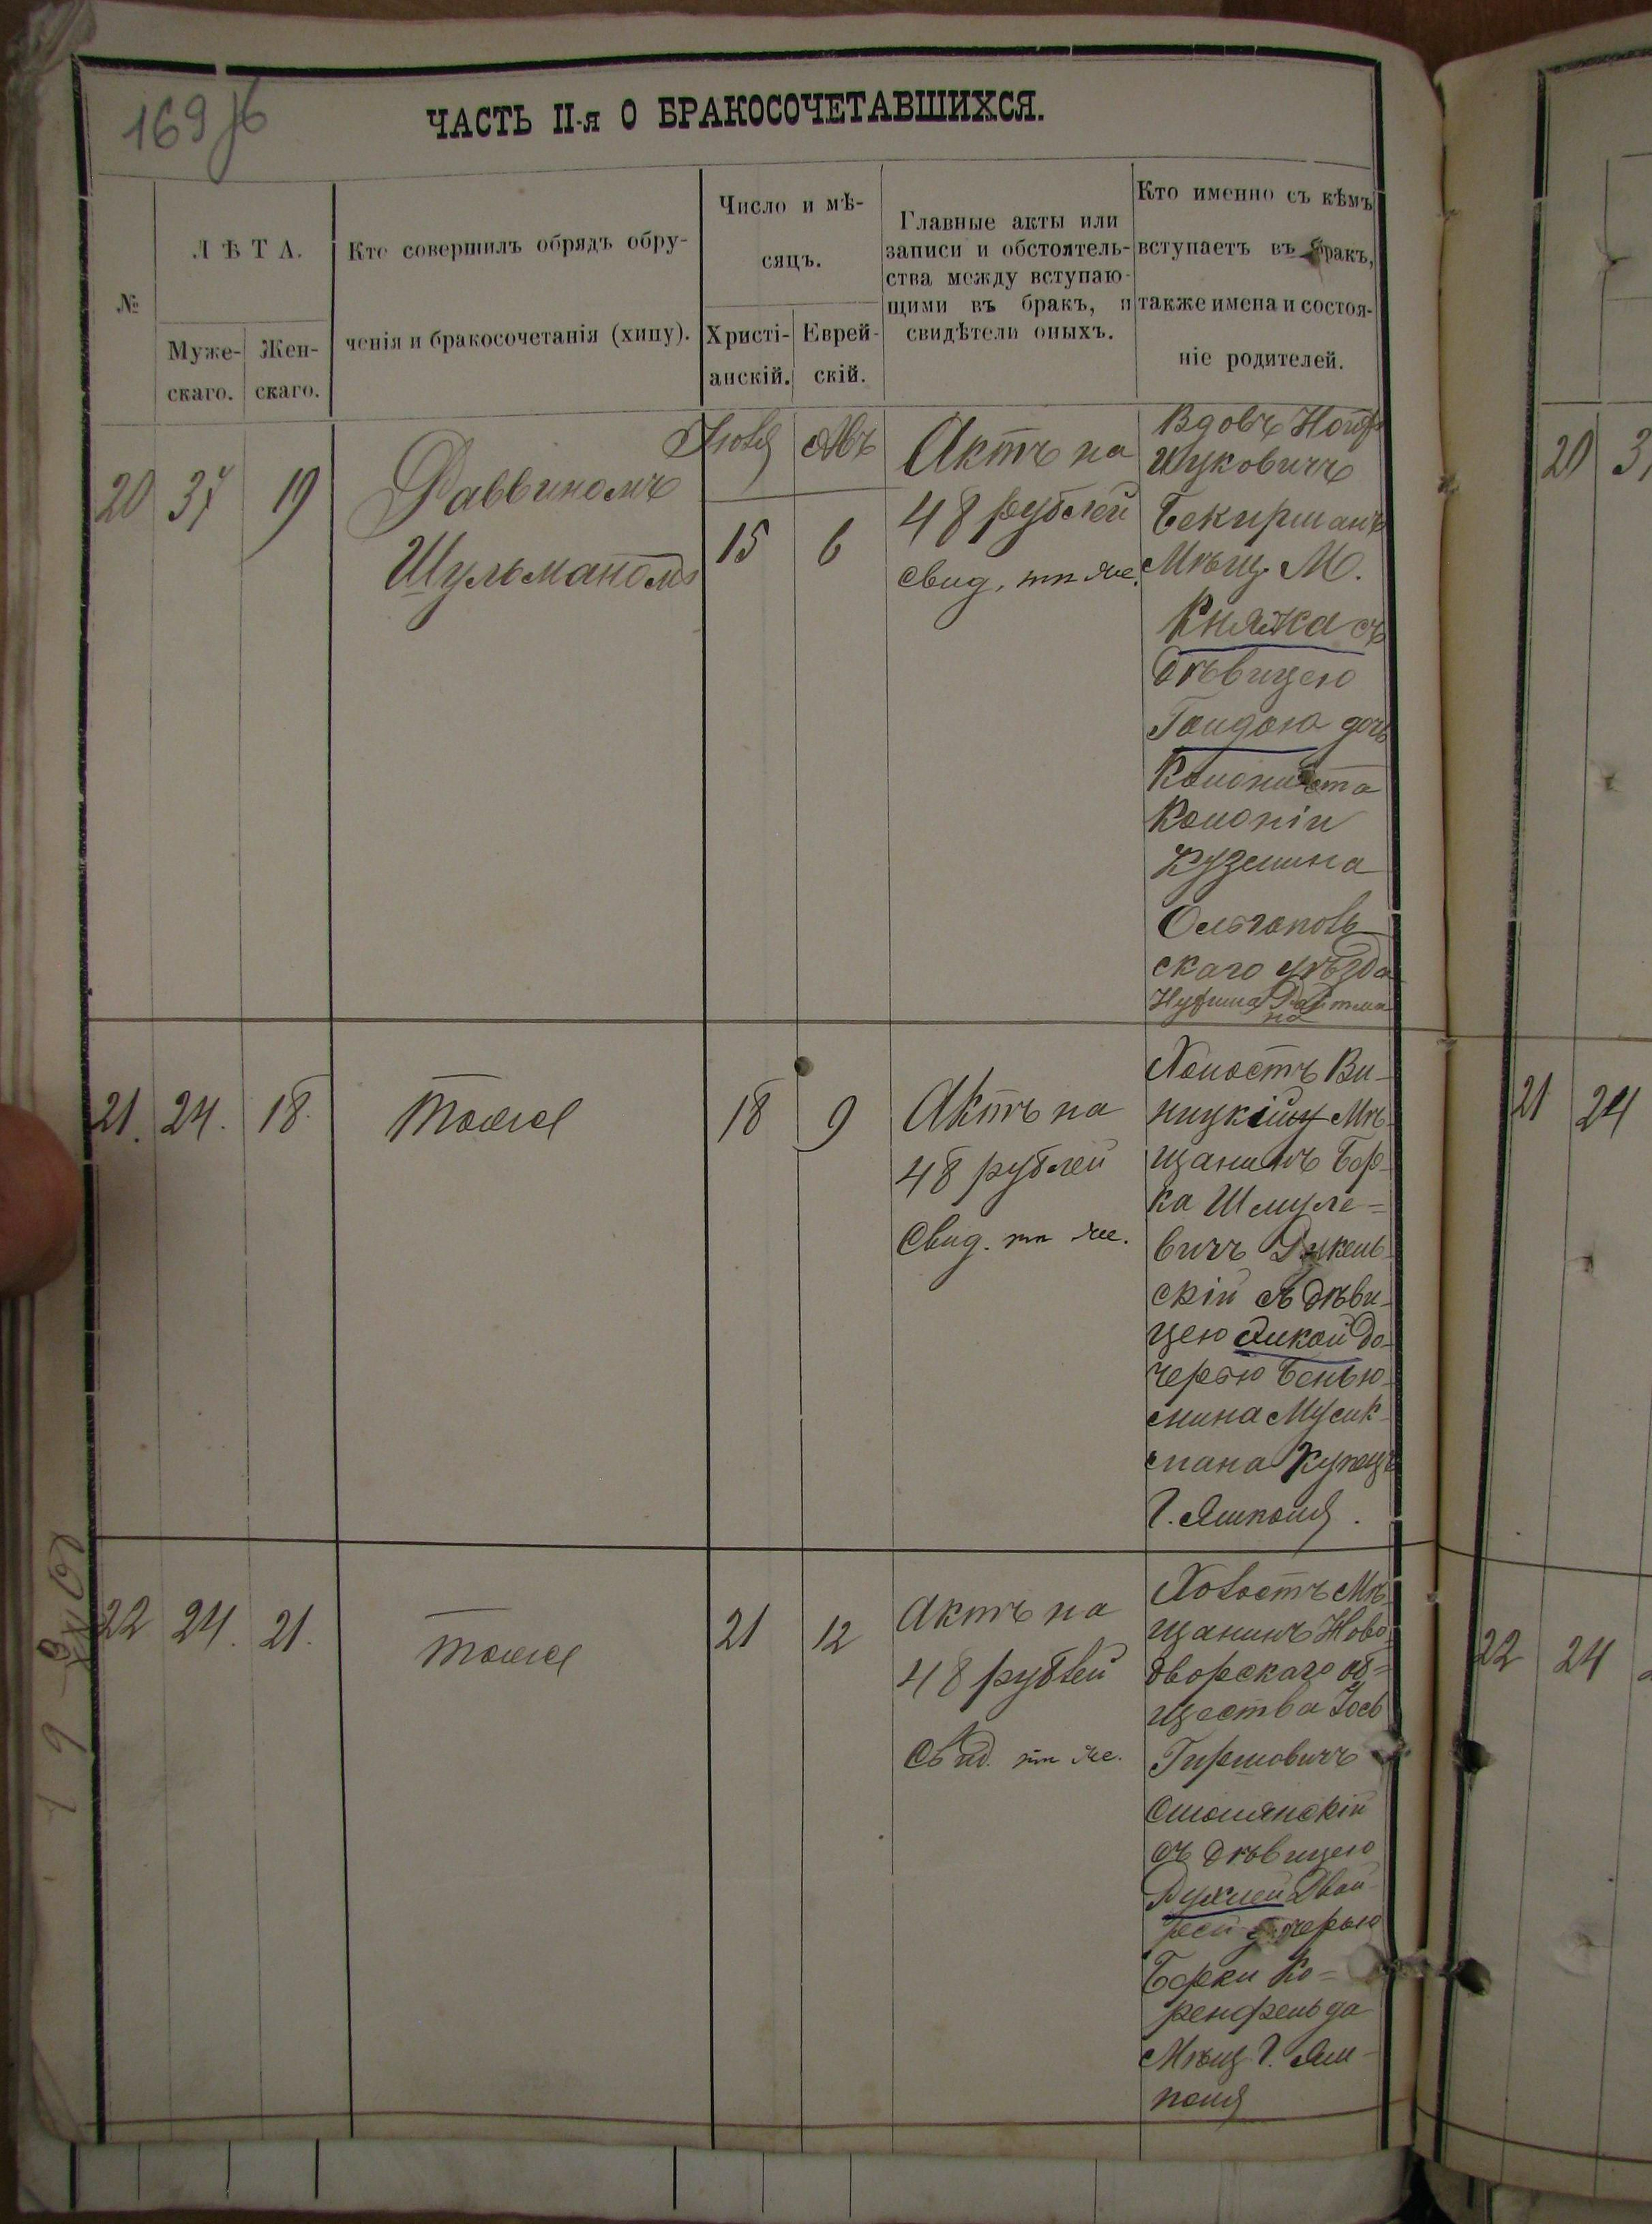 169 об
ЧАСТЬ II-я О БРАКОСОЧЕТАВШИХСЯ.
№
ЛѢТА.
Муже-
скаго.
Жен-
скаго.
Кто совершилъ обрядъ обру-
ченія и бракосочетанія (хипу).
Число и мѣ-
сяцъ.
Христі-
анскій.
Еврей-
скій.
Главные акты или
записи и обстоятель-
ства между вступаю-
щими въ бракъ, и
свидѣтели оныхъ.
Кто именно съ кѣмъ
вступаетъ въ бракъ,
также имена и состоя-
ніе родителей.
20
37
19
Раввиномъ
Шульманомъ
Іюля
15
Авъ
6
Актъ на
48 рублей
Свид. тѣ же.
Вдовъ
Ицковичъ
Бекирманъ
Мѣщ. М.
Княжа съ
дѣвицею
дочь
Колониста
Колоніи
Кузмина
Ольгополь
скаго уѣзда
21.
24.
18.
Тоже
18
9
Актъ на
48 рублей
Свид. тѣ же.
Холостъ Ви-
ницкій Мѣ-
щанинъ Бор-
ка Шмуле-
вичъ
скій съ дѣви-
цею до-
черью Бенью-
мина Мусик-
мана Купецъ
г. Ямполя.
22
24.
21.
Тоже
21
12
Актъ на
48 рублей
Свид. тѣ же.
Холостъ Мѣ-
щанинъ Ново
дворскаго об-
щества Іось
Гиршовичъ
Ошмянскій
съ дѣвицею
Рухлей Двой-
рей дочерью
Борки Ко-
ренфельда
Мѣщ. г. Ям-
поля
20
21
24
22
24